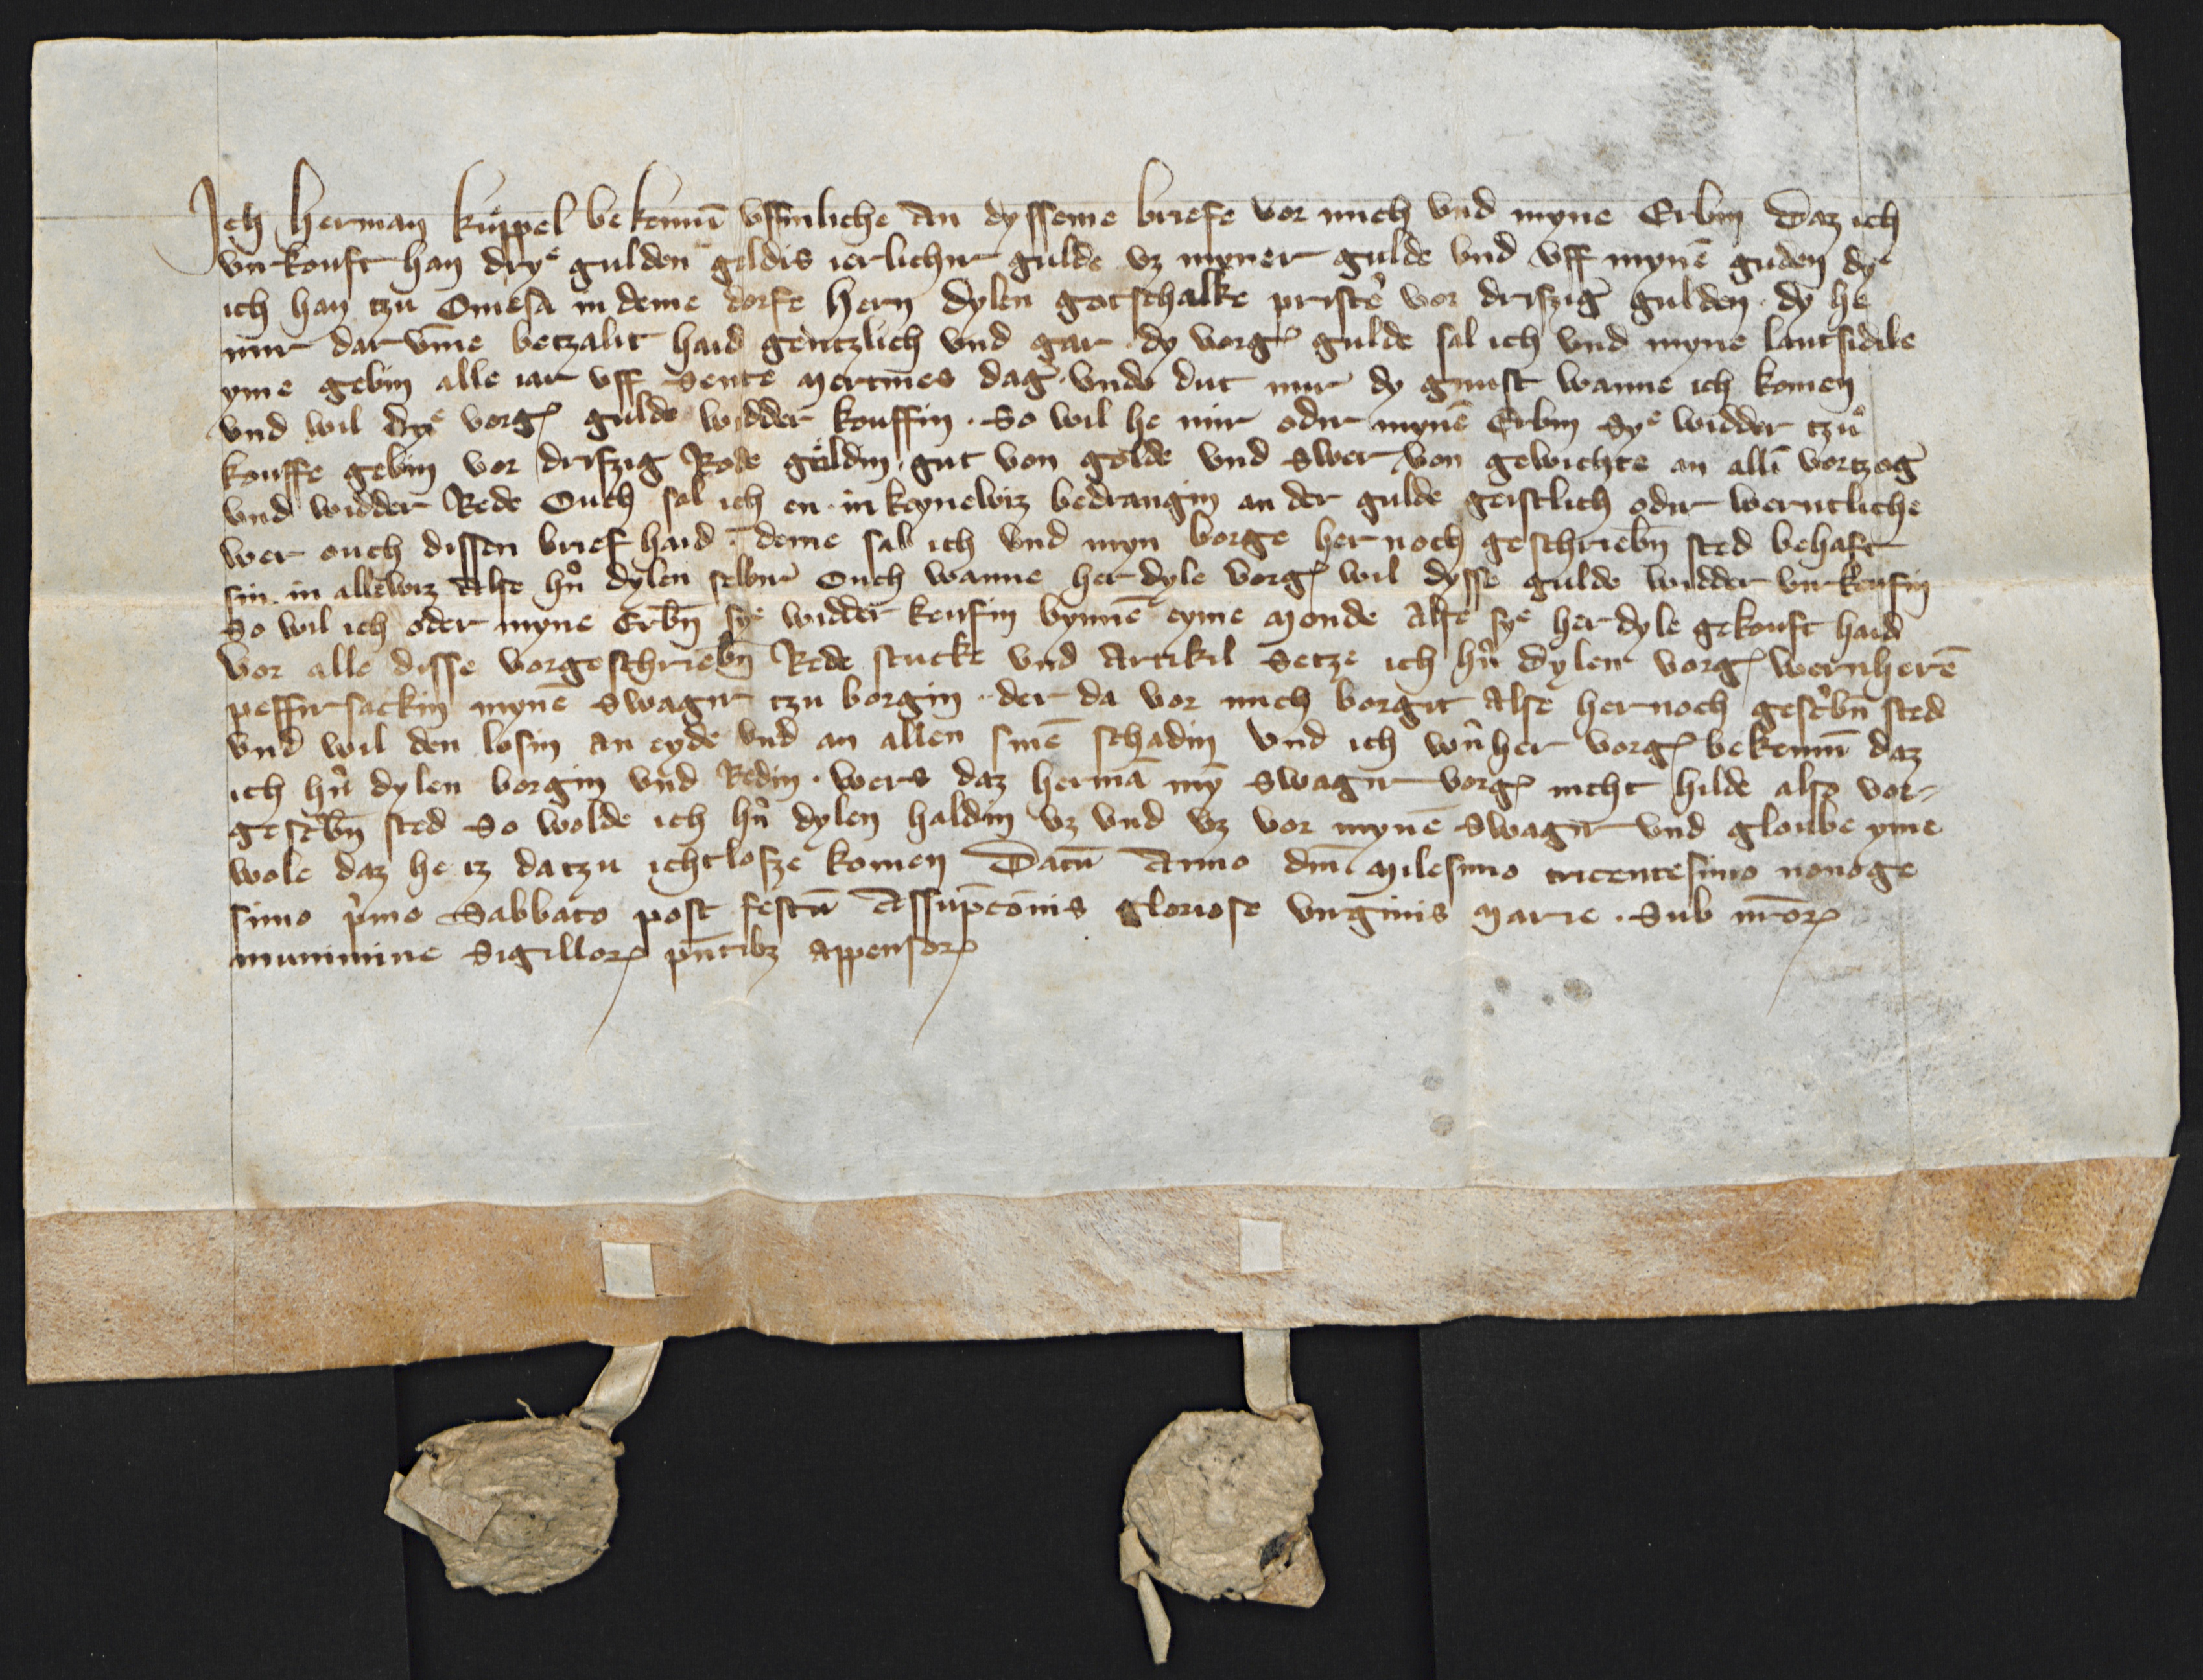 Ich Herman kuͤppel bekenn̄ uffinliche an dysseme briefe vor mich vnd myne Erbin Daz ich
virkouft han dryͤ gulden geldis ierlichir gulde vz myner gulde vnd vff mynē guden dyͤ
ich han tzu Omesa in deme dorfe hern dylen gotschalke pristeˀ vor driszig gulden · dy he
mir dar vm̄e betzalit haid gentzlich vnd gar · dy vorgꝭ gulde sal ich vnd myne lantsidile
yme gebin alle iar vff Sente Mertines dag · vnde dut mir dy gunst wanne ich komen
vnd wil dyͤ vorgꝭ gulde widder kouffin · So wil he mir odir mynē Erbin Syͤ widder tzuͦ
kouffe gebin vor driszig Rode guͤldin gut von golde vnd Swer von gewichte an allī vortzog
vnd widder Rede Ouch sal ich en in keynewiz bedrangin an der gulde geistlich odir werntliche
wer ouch dissen brief haid · deme sal ich vnd myn borge her noch geschriebn̄ sted behaft
sin in allewiz Alse hn̄ dylen selbir Ouch wanne her dyle vorgꝭ wil dysse gulde widder virkeufin
So wil ich oder myne Erbn̄ syͤ widder keufin bynnē eyme Monde Alse syͤ her dyle gekouft haid
Vor alle disse vorgeschriebn̄ Rede stucke vnd Artikil Setze ich hn̄ dylen vorgꝭ wernherē
peffirsackin mynē Swagir tzu borgin · der da vor mich borgit Alse hernoch gescˀbn̄ sted
vnd wil den losin an eyde vnd an allen sinē schadin Vnd ich wn̄her vorgꝭ bekenn̄ daz
ich hn̄ dylen borgin vnd Redin · wers daz hermā mȳ Swagir vorgꝭ nicht hilde also vor-
gescˀbn̄ sted So wolde ich hn̄ dylen haldin vz vnd vz vor mynē Swagir vnd gloube yme
wole daz he iz datzu icht losze komen Datū Anno dni̅ Milesimo tricentesimo nonoge
simo pˀmo Sabbato post festū Assūpcōnis gloriose virginis Marie · Sub nr̄orꝭ
munimine Sigillorꝭ pn̄tibꝫ appensorꝭ